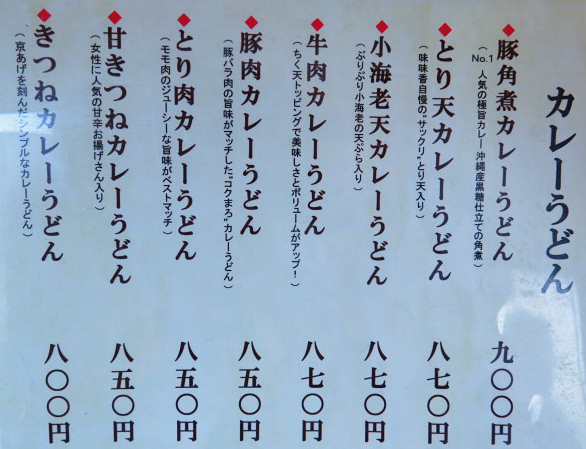 カレーうどん
◆豚角煮カレーうどん 九〇〇円
(No.1 人気の極旨カレー 沖縄産黒糖仕立ての角煮)
◆とり天カレーうどん 八七〇円
(味味香自慢の"サックリ"とり天入り)
◆小海老天カレーうどん 八七〇円
(ぷりぷり小海老の天ぷら入り)
◆牛肉カレーうどん 八七〇円
(ちく天トッピングで美味しさとボリュームがアップ!)
◆豚肉カレーうどん 八五〇円
(豚バラ肉の旨味がマッチした"コクまろ"カレーうどん)
◆とり肉カレーうどん 八五〇円
(モモ肉のジューシーな旨味がベストマッチ)
◆甘きつねカレーうどん 八五〇円
(女性に人気の甘辛お揚げさん入り)
◆きつねカレーうどん 八〇〇円
(京あげを刻んだシンプルなカレーうどん)